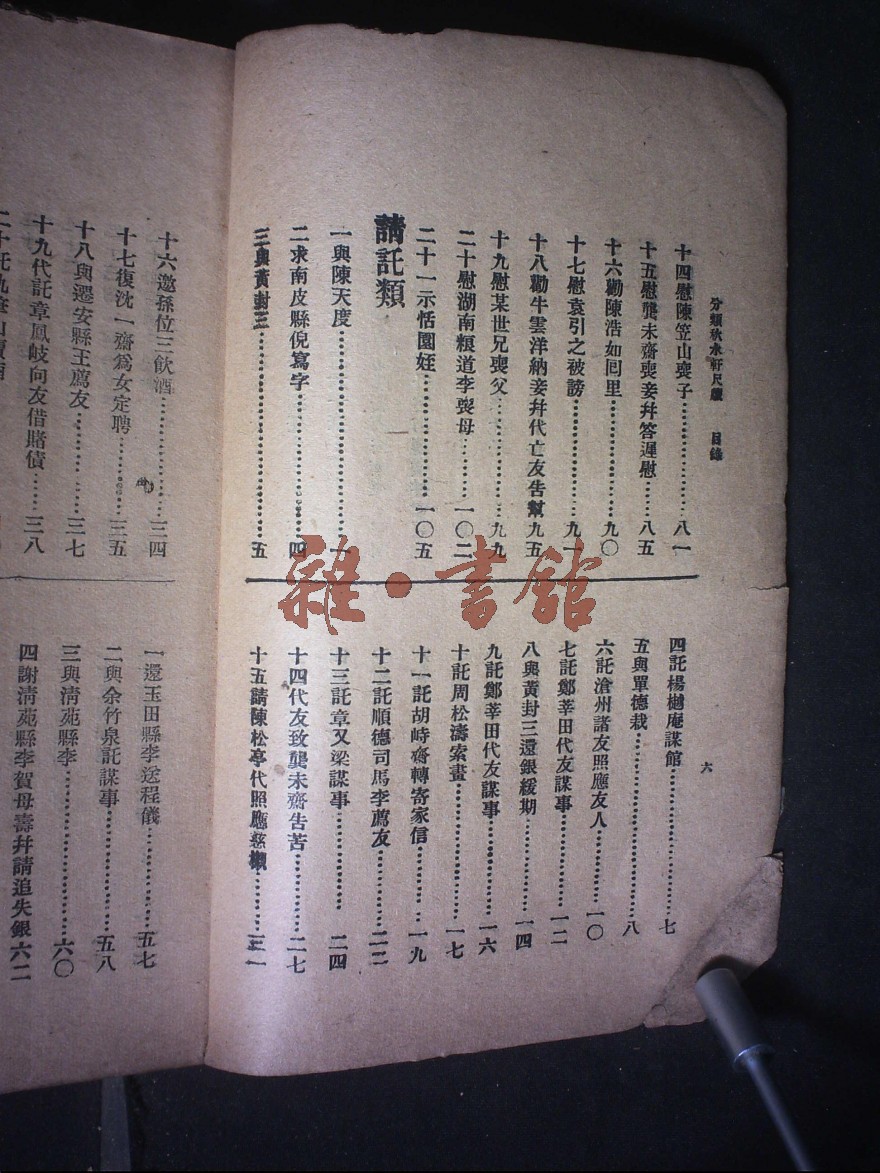 分類秋水軒尺牘 目錄
六
十四慰陳笠山喪子……八一
十五慰龔未齋喪妾幷答遲慰……八五
十六勸陳浩如囘里……九〇
十七慰袁引之被謗……九一
十八勸牛雲洋納妾幷代亡友吿幫九五
十九慰某世兄喪父……九九
二十慰湖南糧道李喪母……一〇二
二十一示恬園姪……一〇五
請託類
一與陳天度……一
二求南皮縣倪寫字……四
三與黃封三……五
四託楊樾庵謀館……七
五與單德栽……八
六託滄州諸友照應友人……一〇
七託鄭莘田代友謀事……一二
八與黃封三還銀緩期……一四
九託鄭莘田代友謀事……一六
十託周松濤索畫……一七
十一託胡峙齋轉寄家信……一九
十二託順德司馬李薦友……二二
十三託章又梁謀事……二四
十四代友致龔未齋吿苦……二七
十五請陳松亭代照應慈櫬……三一
雜·書館
十六邀孫位三飲酒……三四
十七復沈一齋爲女定聘……三五
十八與遷安縣王薦友……三七
十九代託章鳳岐向友借賭債……三八
二十託
一還玉田縣李送程儀……五七
二與余竹泉託謀事……五八
三與淸苑縣李……六〇
四謝淸苑縣李賀母壽幷請追失銀六二